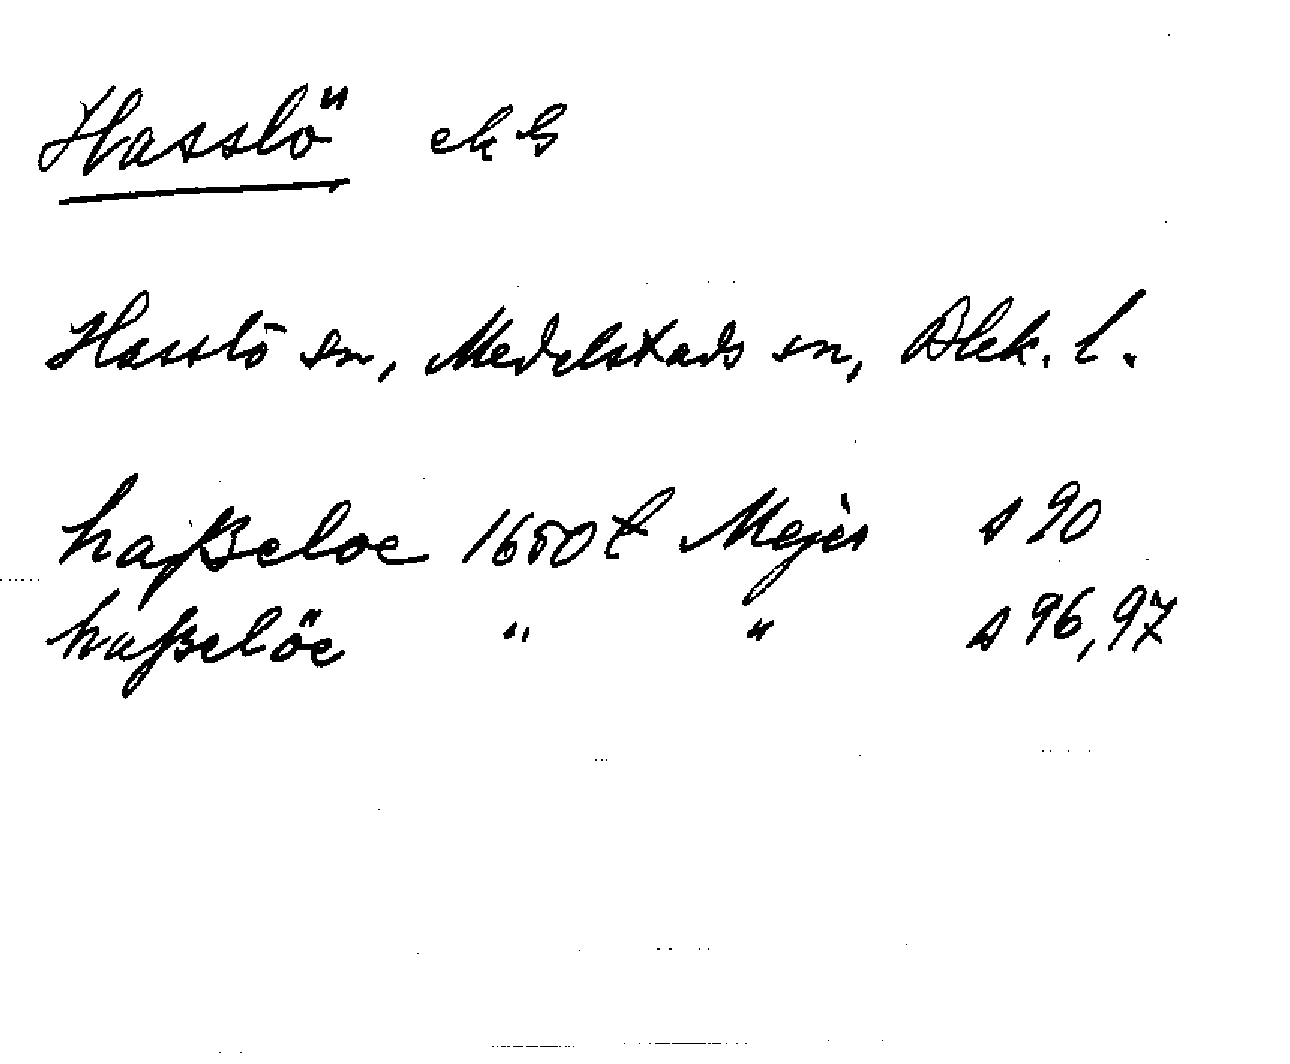 Hasslö ek G
Hasslö sn, Medelstads sn, Blek. l.
haßeloe 1650 t Mejer s 90
haßelöe " " s 96, 97